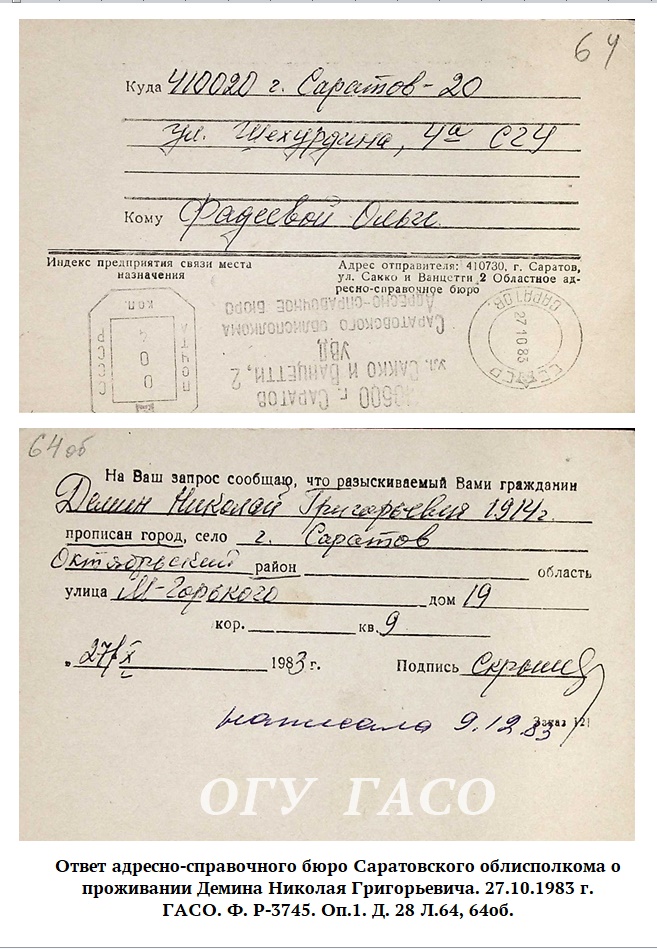 64
Куда 410020 г. Саратов-20
ул. Шехурдина, 4а СГУ
Кому Фадеевой Ольге.
Индекс предприятия связи места
назначения
Адрес отправителя: 410730, г. Саратов,
ул. Сакко и Ванцетти 2 Областное ад-
ресно-справочное бюро
ПОЧТА
СССР
4
00
КОП.
г. САРАТОВ
ул. САККО И ВАНЦЕТТИ, 2
УВД
САРАТОВСКОГО ОБЛИСПОЛКОМА
АДРЕСНО-СПРАВОЧНОЕ БЮРО
САРАТОВ
271083
64об
На Ваш запрос сообщаю, что разыскиваемый Вами гражданин
Демин Николай Григорьевич 1914г.
прописан город, село г. Саратов
Октябрьский район область
улица М-Горького дом 19
кор. кв. 9
„ 27/X 1983 г. Подпись
написала 9.12.83
Заказ 121
ОГУ ГАСО
Ответ адресно-справочного бюро Саратовского облисполкома о
проживании Демина Николая Григорьевича. 27.10.1983 г.
ГАСО. Ф. Р-3745. Оп.1. Д. 28 Л.64, 64об.